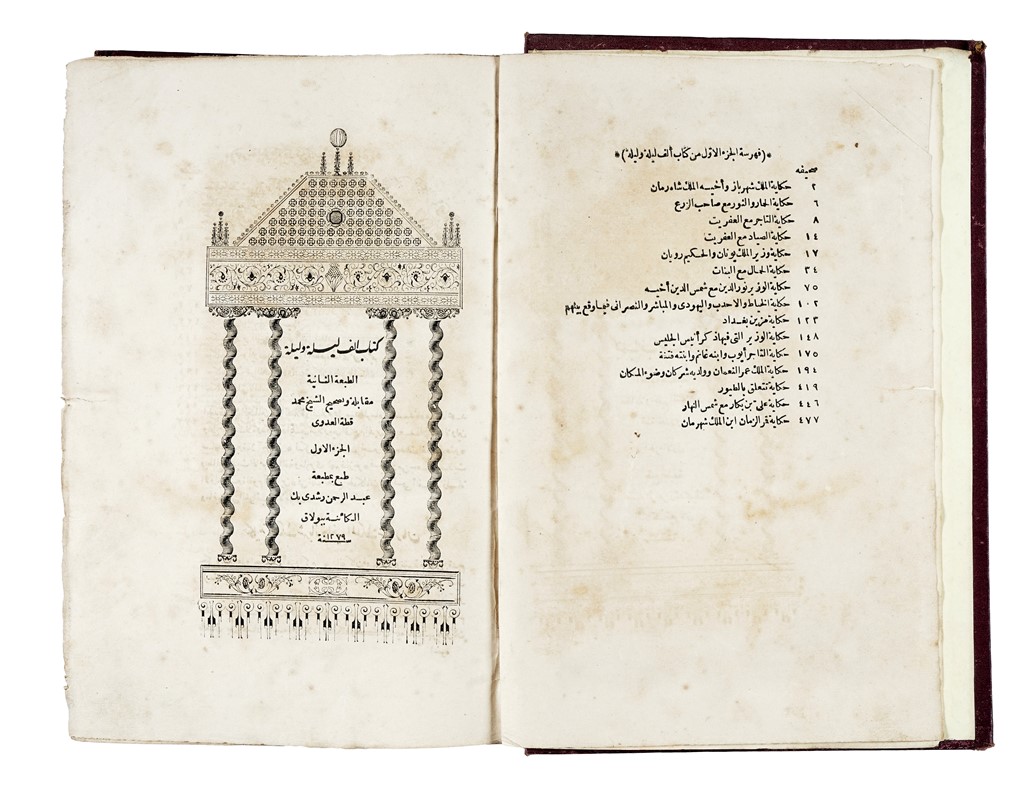 *(فهرسة الجزء الاول من كتاب ألف ليلة وليلة)*
صحيفه
٢ حكاية الملك شهرباز وأخيه الملك شاه رمان
٦ حكاية الحمار والثور مع صاحب الزرع
٨ حكاية التاجر مع العفريت
١٤ حكاية الصياد مع العفريت
١٧ حكاية وزير الملك يونان والحكيم رويان
٣٤ حكاية الحمال مع البنات
٧٥ حكاية الوزير نور الدين مع شمس الدين أخيه
١٠٢ حكاية الخياط والاحدب واليهودى والمباشر والنصرانى فيما وقع بينهم
١٢٣ حكاية مزين بغداد
١٤٨ حكاية الوزير التى فيها ذكر أنيس الجليس
١٧٥ حكاية التاجر أيوب وابنه غانم وابنته فتنة
١٩٤ حكاية الملك عمر النعمان وولديه شركان وضوء المكان
٤١٩ حكاية تتعلق بالطيور
٤٤٦ حكاية على بن بكار مع شمس النهار
٤٧٧ حكاية قمر الزمان ابن الملك شهرمان
كتاب الف ليلة وليلة
الطبعة الثانية
مقابلة وتصحيح الشيخ محمد
قطة العدوى
الجزء الاول
طبع بمطبعة
عبد الرحمن رشدى بك
الكائنة ببولاق
سنة ١٢٧٩